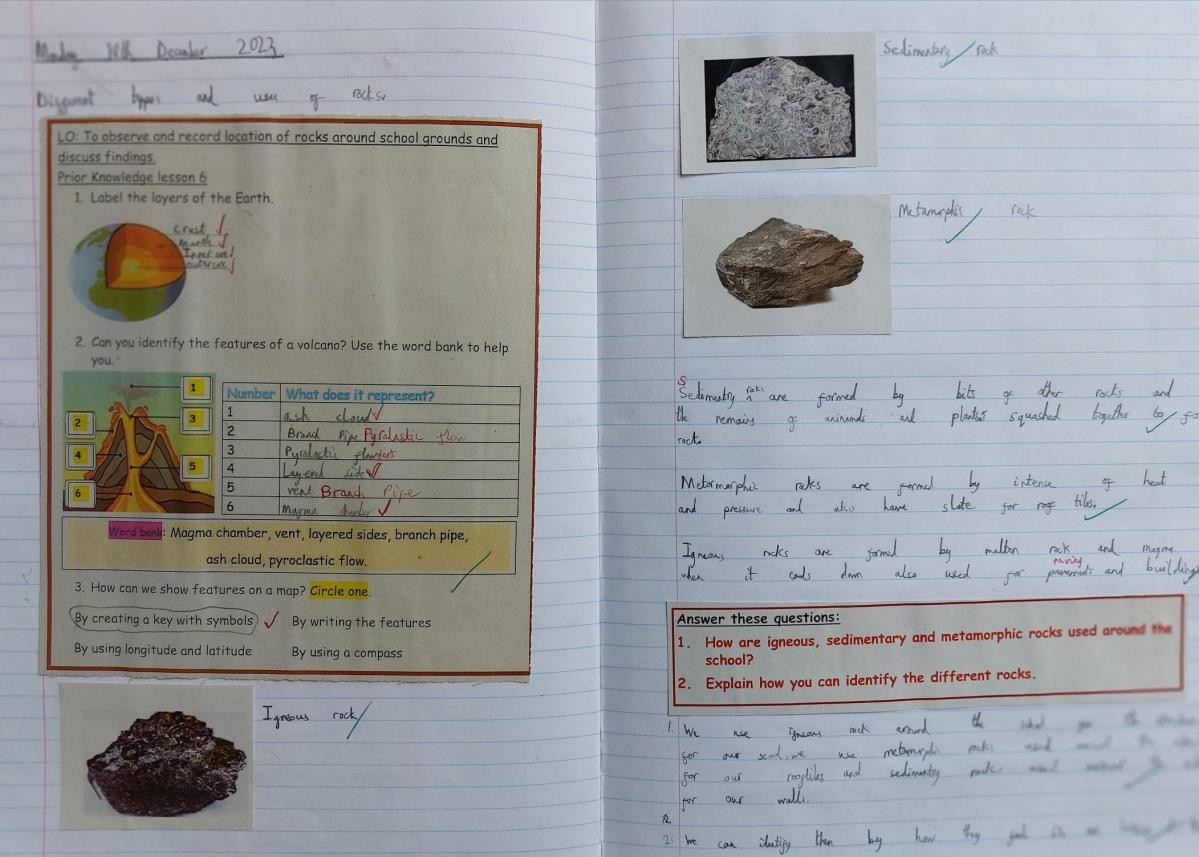 December 2023
types and uses of rocks.
LO: To observe and record location of rocks around school grounds and
discuss findings.
Prior Knowledge lesson 6
1. Label the layers of the Earth.
Crust
2. Can you identify the features of a volcano? Use the word bank to help
you.
1
2
3
4
5
6
Number What does it represent?
1 ash cloud
2 Branch Pipe
3
4 side
5 vent Branch Pipe
6 Magma
Word bank: Magma chamber, vent, layered sides, branch pipe,
ash cloud, pyroclastic flow.
3. How can we show features on a map? Circle one.
By creating a key with symbols By writing the features
By using longitude and latitude By using a compass
Igneous rock
Sedimentary rock
Metamorphic rock
are formed by bits of other rocks and
the remains of and squashed together to
rock.
rocks are formed by intence of heat
and pressure and also have slate for roof tiles.
Igneous rocks are formed by rock and magma
when it down also used for paving and
Answer these questions:
1. How are igneous, sedimentary and metamorphic rocks used around the
school?
2. Explain how you can identify the different rocks.
1. We use igneous rock around the
for our we use metamorphic rocks used
for our and
for our walls.
2. We can by how they